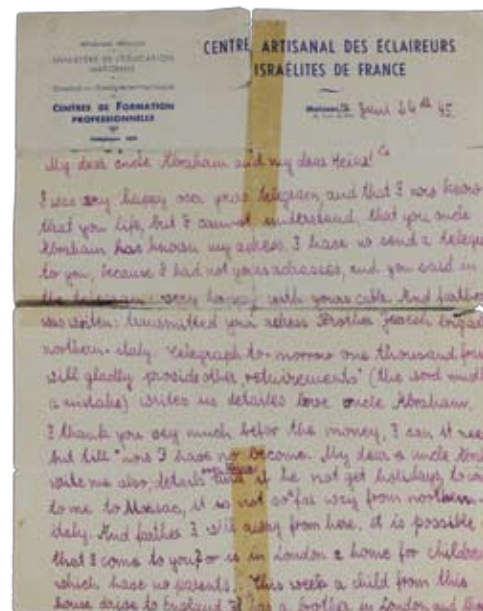 MINISTÈRE DE L'ÉDUCATION
NATIONALE
CENTRES DE FORMATION
PROFESSIONNELLE
CENTRE ARTISANAL DES ECLAIREURS
ISRAÉLITES DE FRANCE
Juni 24th 45.
My dear uncle Abraham and my dear Heini!
I was very happy over yours telegram, and that I now know
that you life, but I cannot understand, that you uncle
Abraham has known my adress. I have no send a telegr
to you, because I had not yours adresses, and you said in
the telegram: very happy with yours cable. And father
was writen: transmitted your adress Brother Jewish brigade
northern-italy. Telegraph to-morrow one thousand fran
will gladly provide other retuirements" (the word
a mistake) writes us detailes love uncle Abraham.
I thank you very much befor the money, I can it nee
but till now I have no become. My dear uncle
write me also, details and if he not get holidays, to com
to me to Moissac, it is not so far way from northern-
italy. And father I will away from here, it is possible
that I come to you? or is in London a home for children
which have no parents. This week a child from this
house to England it has a brother in London and